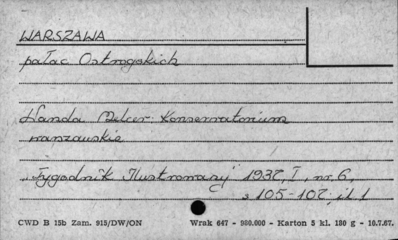 WARSZAWA
pałac Ostrogskich
Wanda Melcer: Konserwatorium
warszawskie
"Tygodnik Ilustrowany" 1937, I, nr. 6,
s 105-107; il. 1
CWD B 15b Zam. 915/DW/ON Wrak 647 - 980.000 - Karton 5 kl. 180 g - 10.7.67.